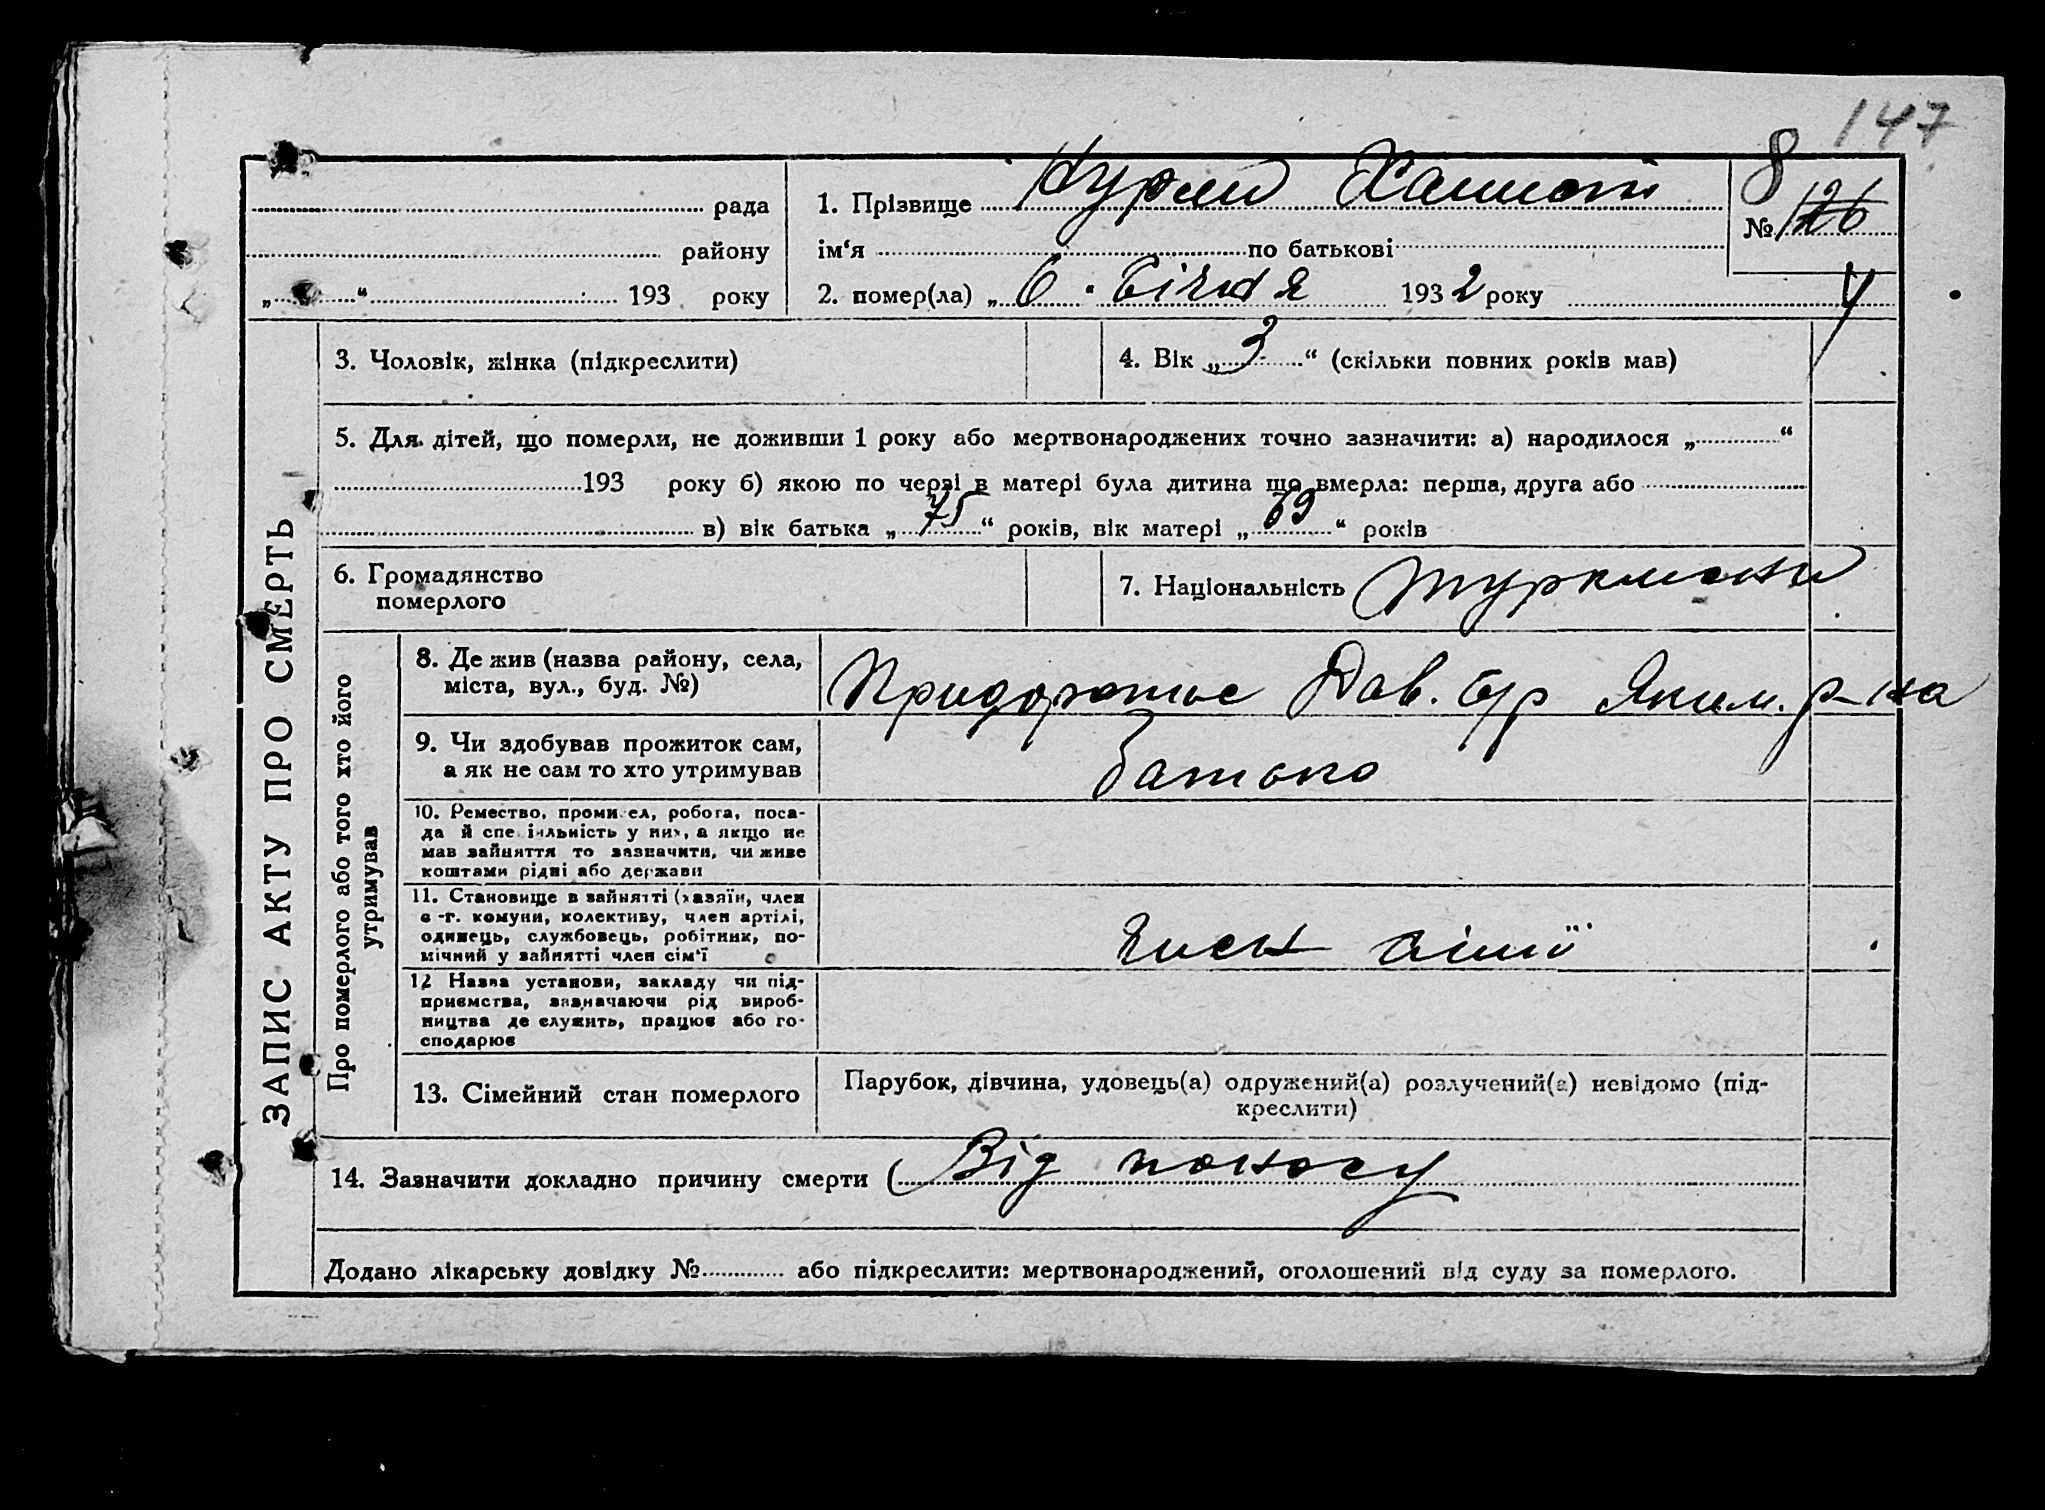 147
8
рада
1. Прізвище Курли Хамиот
№ 126
району
ім‘я по батькові
„ “ 193 року
2. помер(ла) „ 6 “ Січня 1932 року
3. Чоловік, жінка (підкреслити)
4. Вік „ 3 “ (скільки повних років мав)
5. Для дітей, що померли, не доживши 1 року або мертвонароджених точно зазначити: а) народилося „ “
193 року б) якою по черзі в матері була дитина що вмерла: перша, друга або
в) вік батька „ 75 “ років, вік матері „ 69 “ років
6. Громадянство
померлого
7. Національність туркмени
ЗАПИС АКТУ ПРО СМЕРТЬ
Про померлого або того хто його
утримував
8. Де жив (назва району, села,
міста, вул., буд. №)
Придорожнє Дав. с/р Яким. р-на
9. Чи здобував прожиток сам,
а як не сам то хто утримував
батько
10. Ремество, промисел, робота, поса-
да й спеціяльність у них, а якщо не
мав зайняття то зазначити, чи живе
коштами рідні або держави
11. Становище в зайнятті (хазяїн, член
с.-г. комуни, колективу, член артілі,
одинець, службовець, робітник, по-
мічний у зайнятті член сім‘ї
член сімї
12 Назва установи, закладу чи під-
приємства, зазначаючи рід вироб-
ництва де служить, працює або го-
сподарює
13. Сімейний стан померлого
Парубок, дівчина, удовець(а) одружений(а) розлучений(а) невідомо (під-
креслити)
14. Зазначити докладно причину смерти ( Від поносу
Додано лікарську довідку № або підкреслити: мертвонароджений, оголошений від суду за померлого.